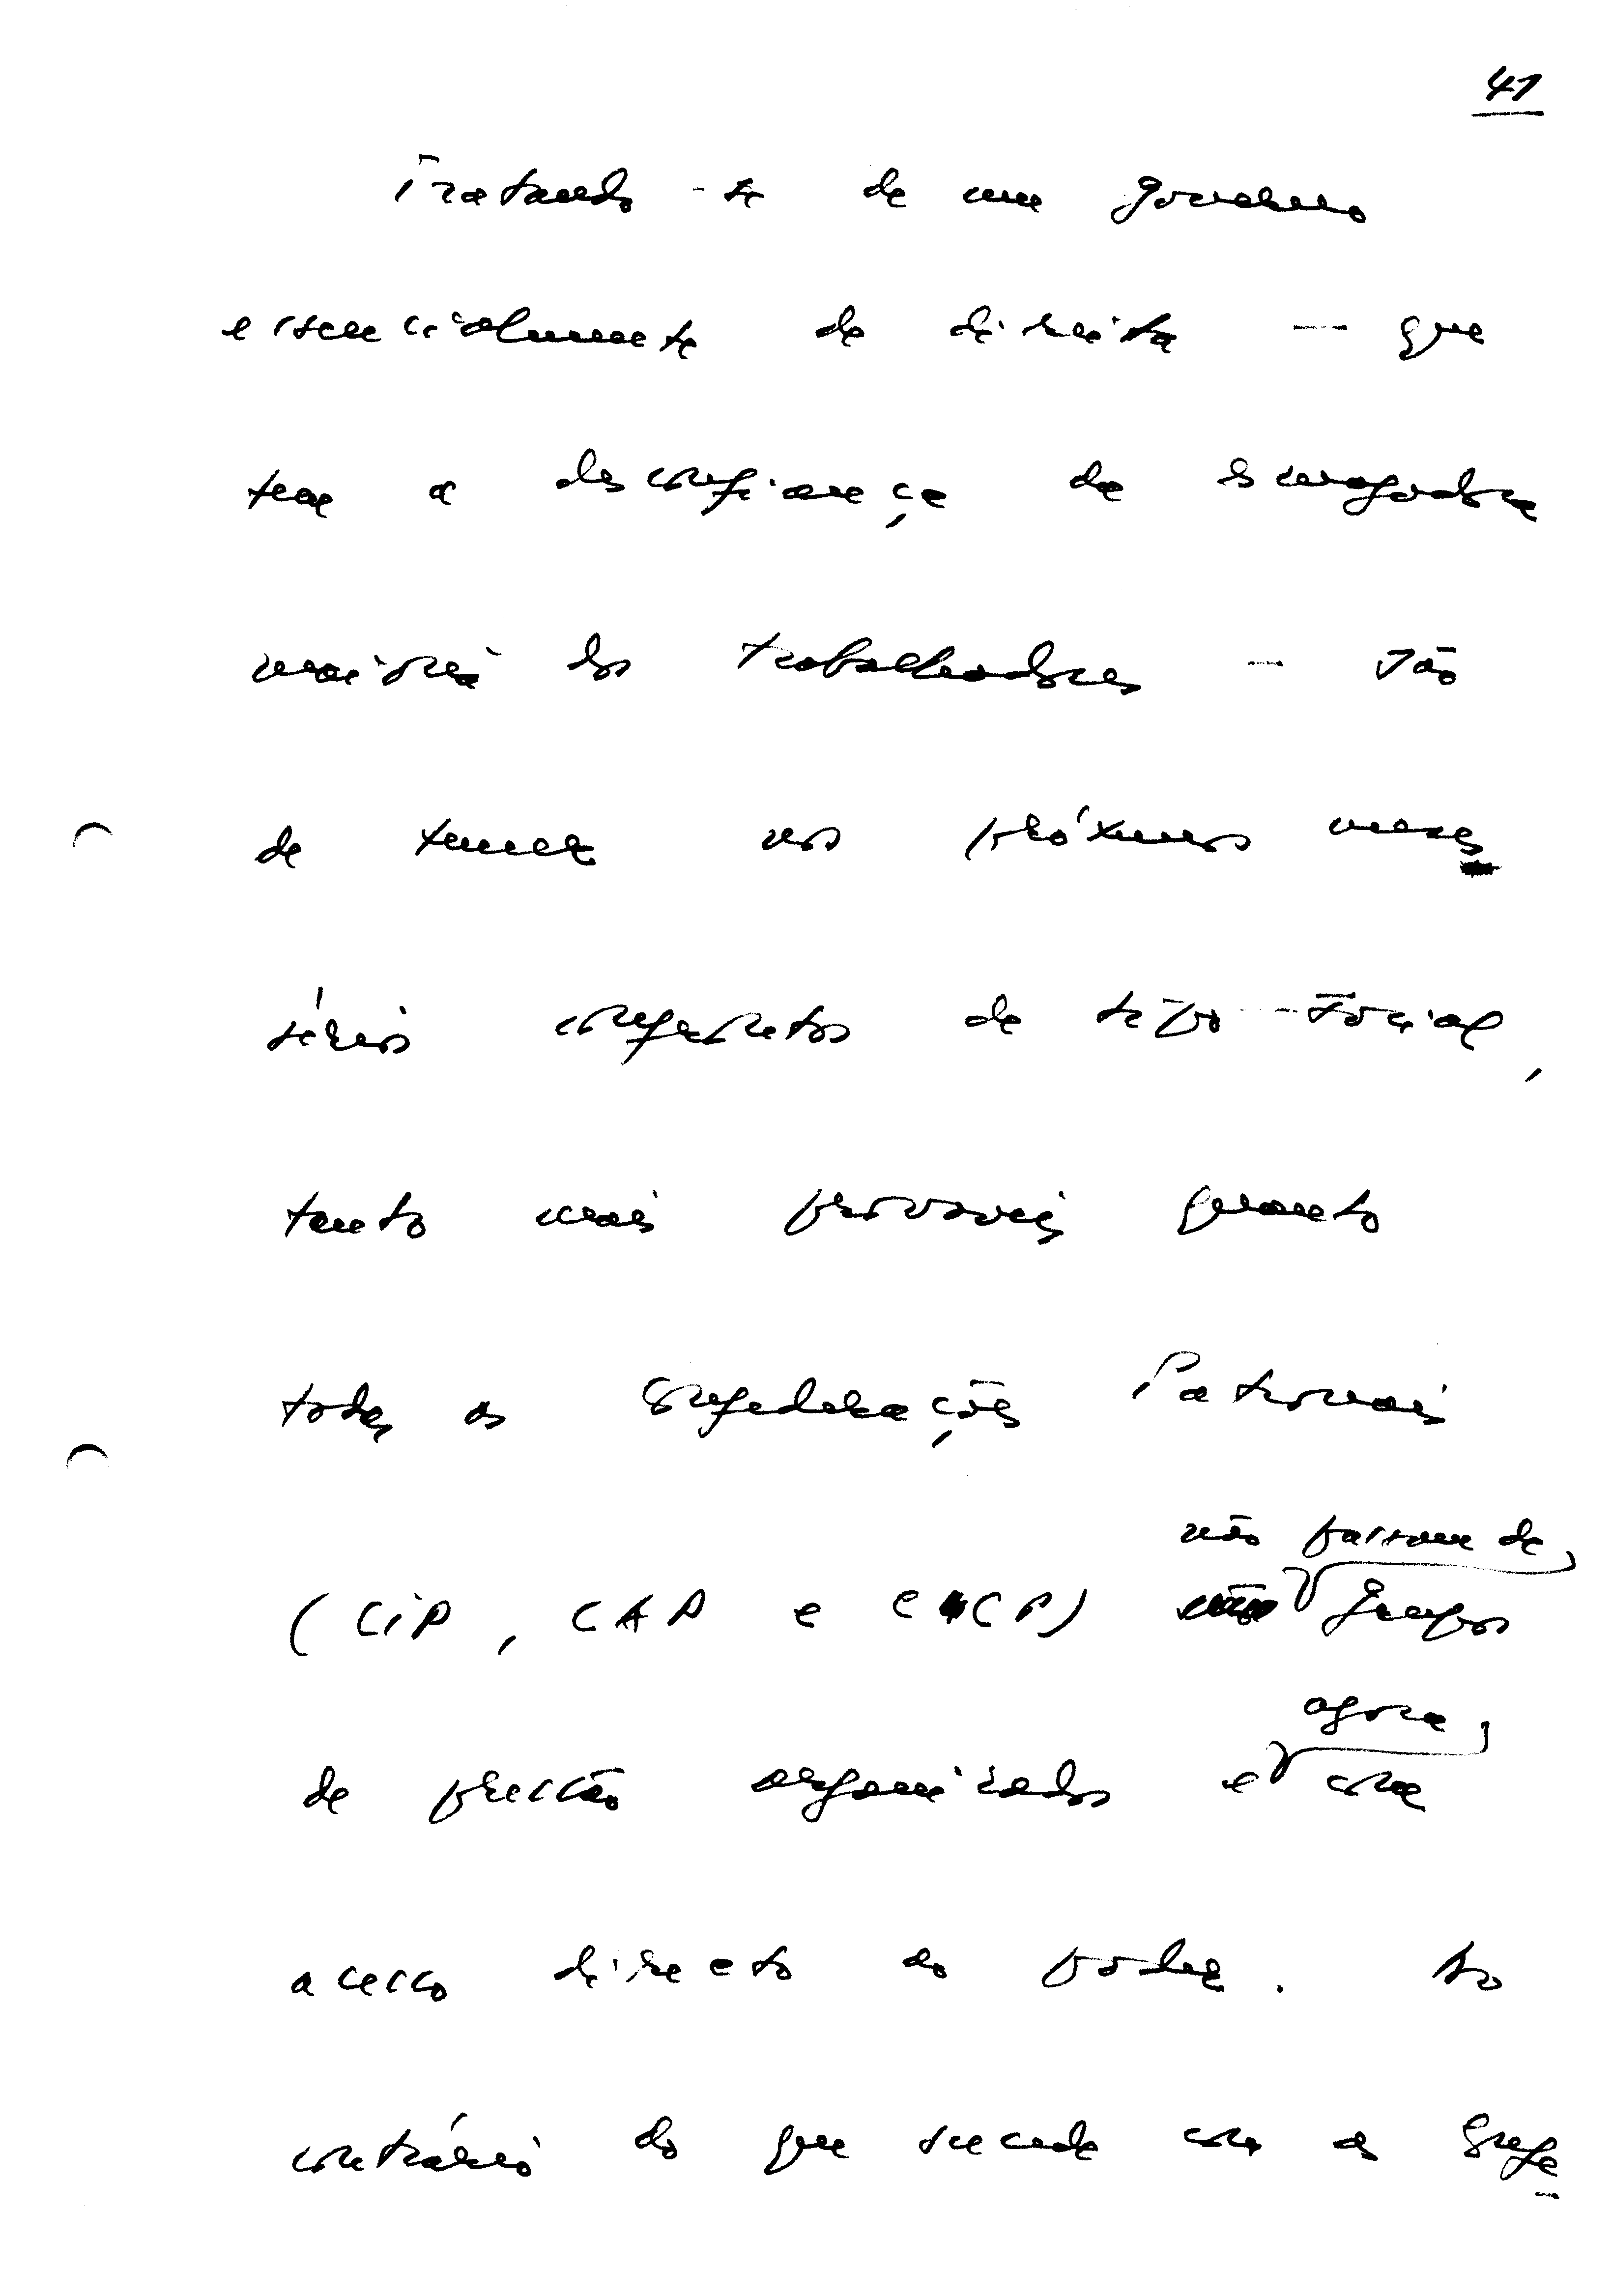 41
Tratando-se de um governo
essencialmente de direita — que
tem a desconfiança da esmagadora
maioria dos trabalhadores — são
de temer nos próximos meses
sérios confrontos de tipo social,
tanto mais prováveis quanto
todas as Confederações Patronais
não passam de
(CIP, CAP e CCP) grupos
agora
de pressão organizados e com
acesso directo ao poder. Ao
contrário do que sucede com as Confe